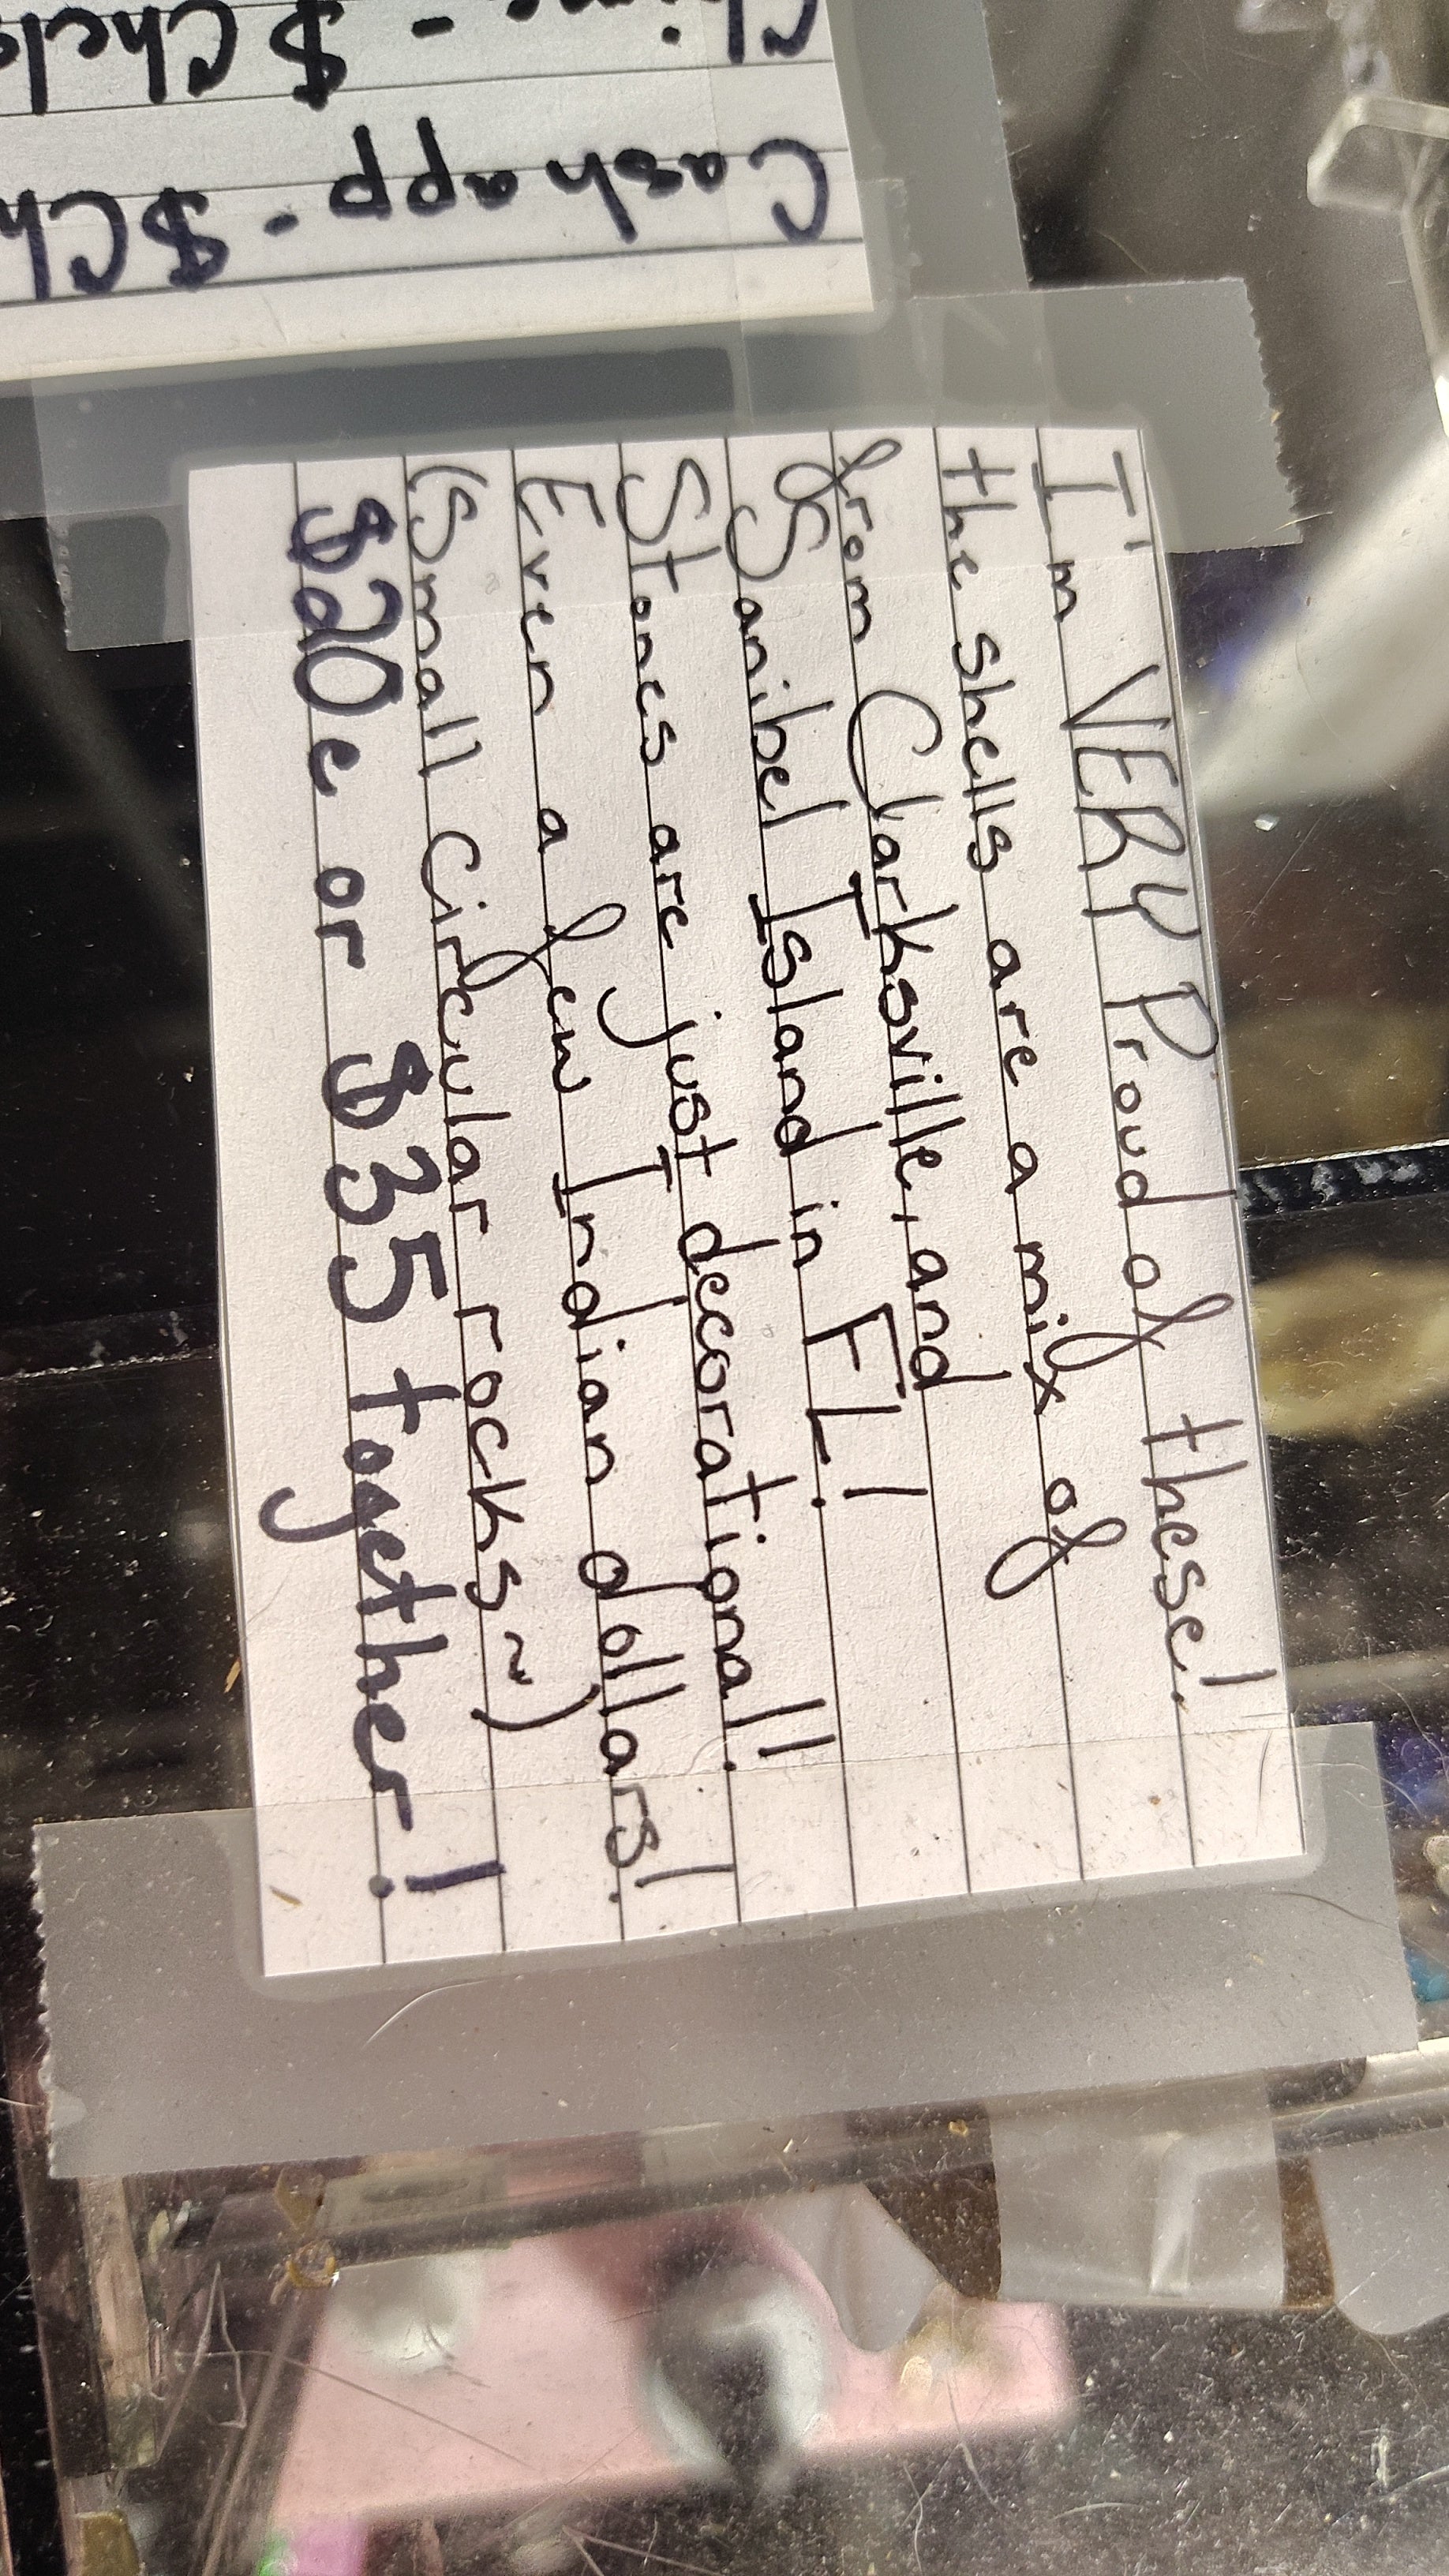 I'm VERY Proud of these!
the shells are a mix of
from Clarksville, and
Sanibel Island in FL!
Stones are just decorationall.
Even a few Indian dollars!
(Small circular rocks~)
$20e or $35 together!
Cashapp - $Ch
- $Chel